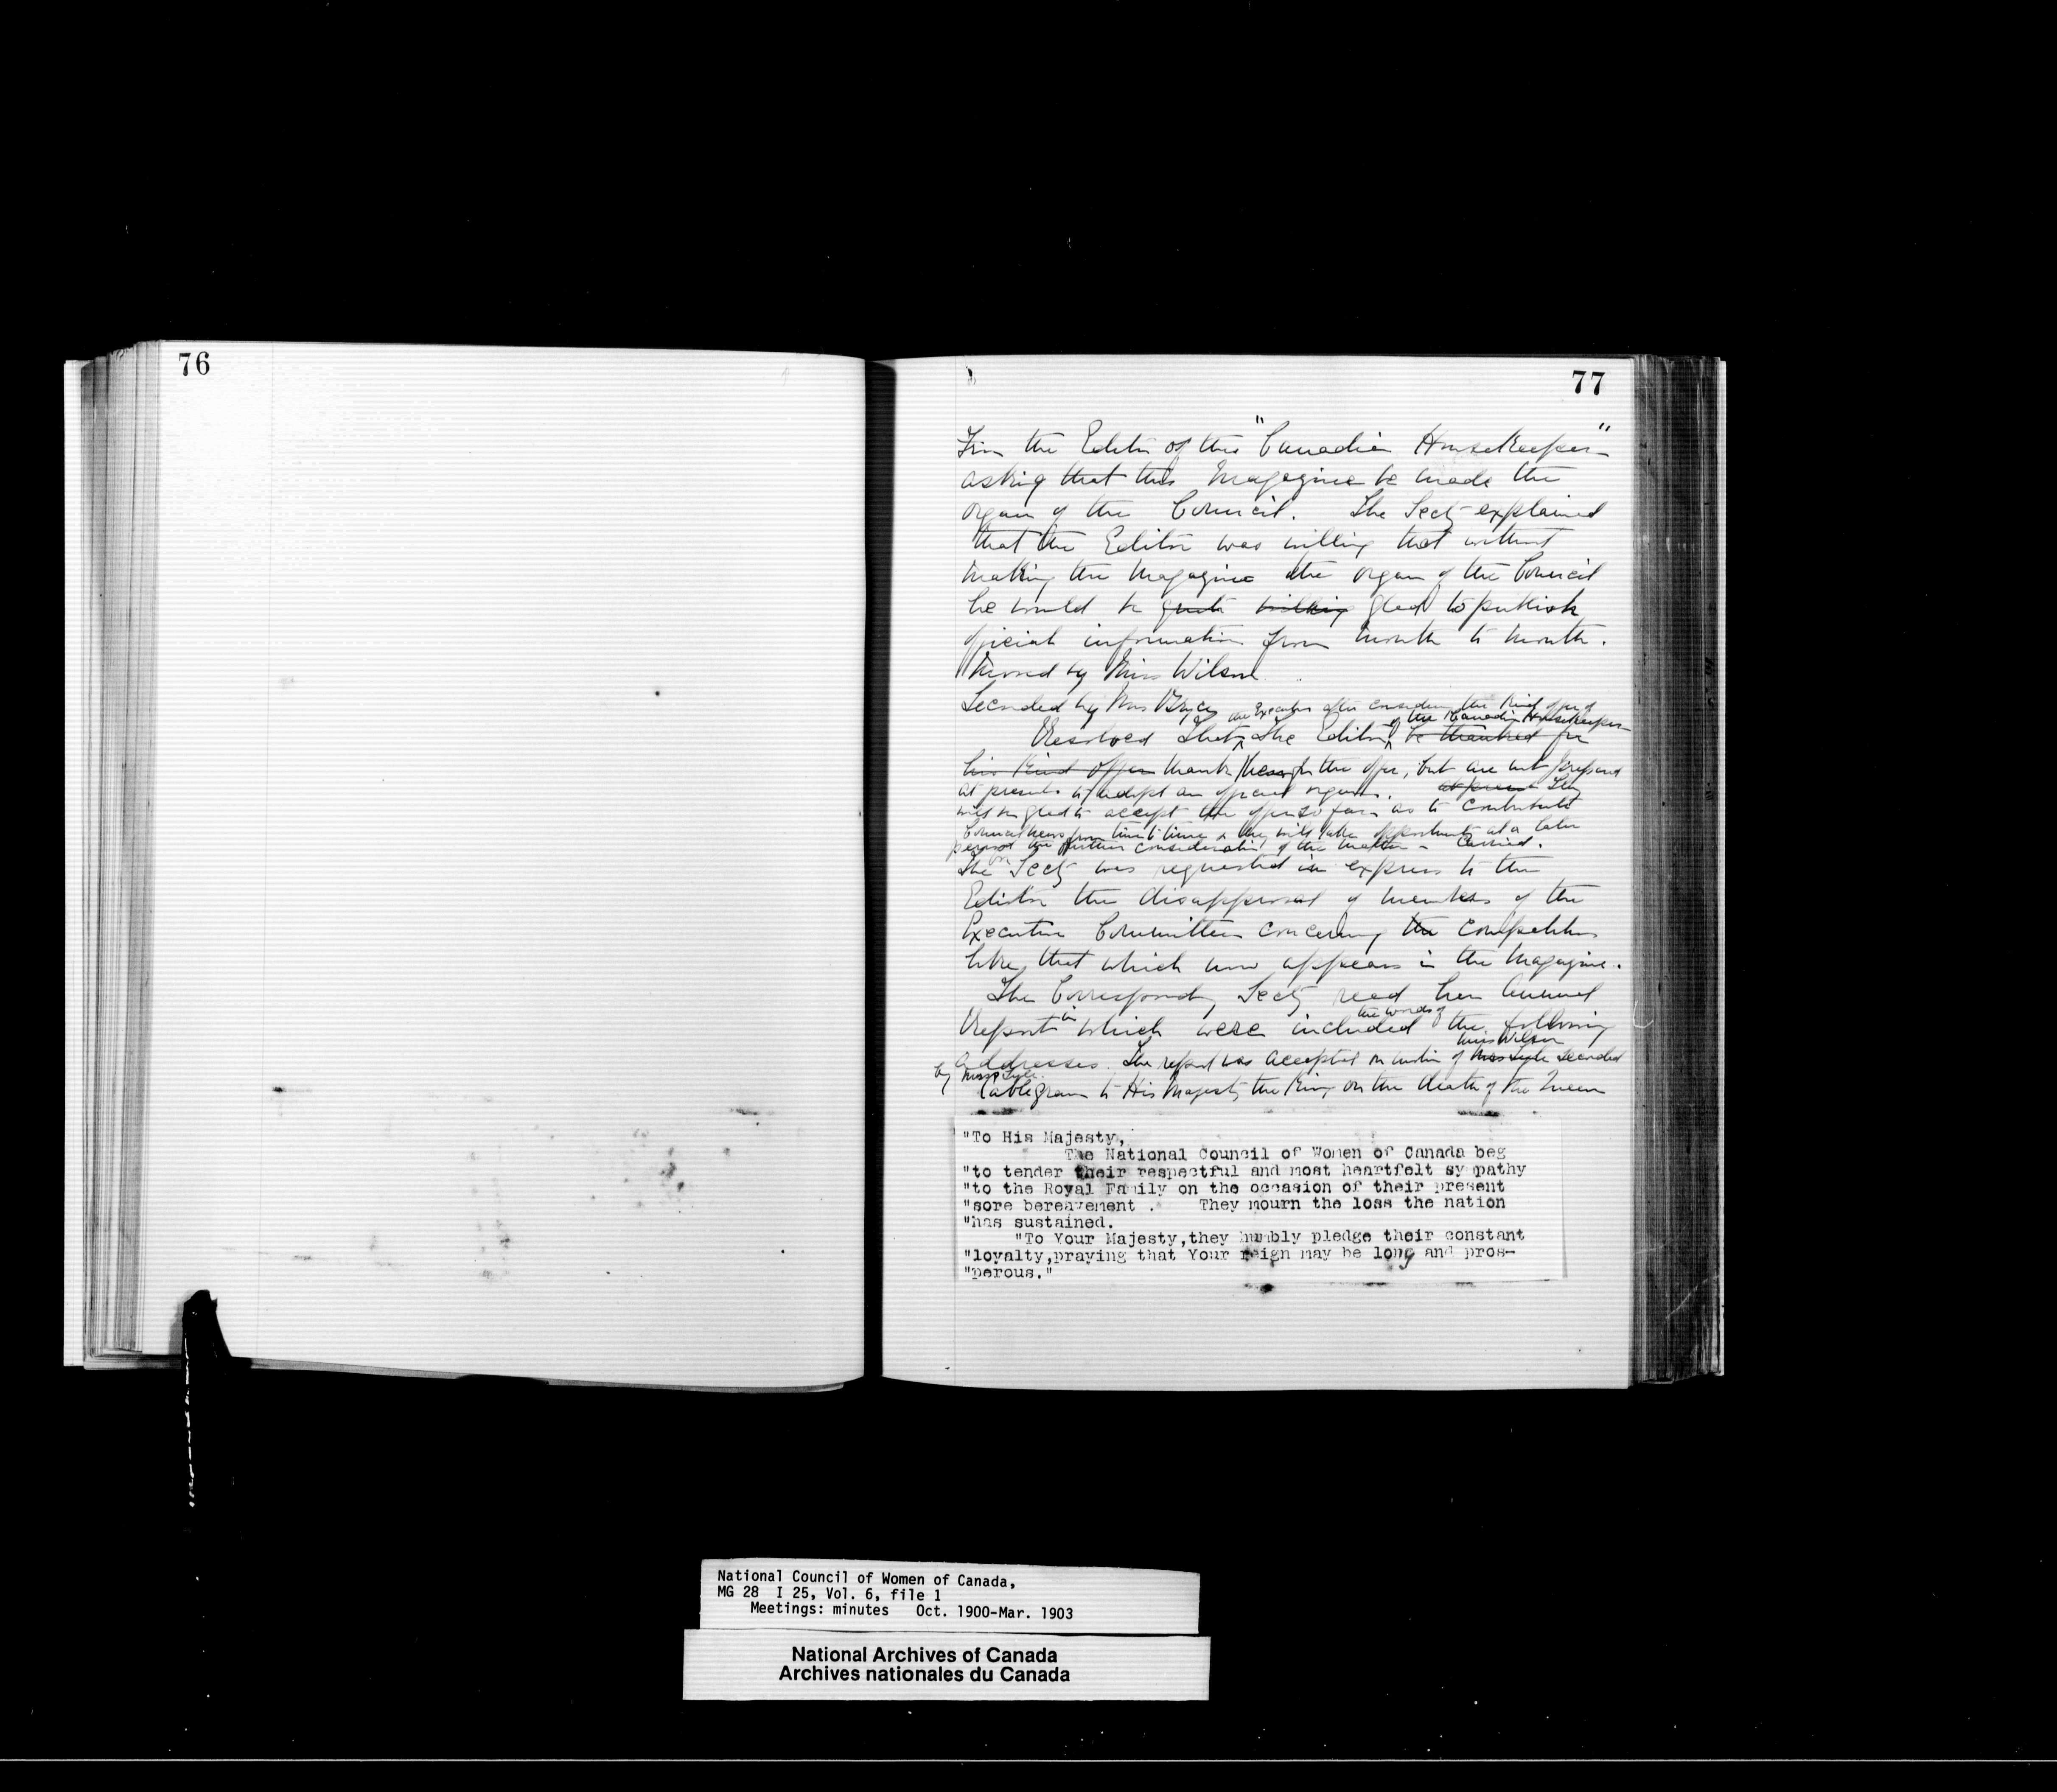 76
77
From the Editor of the "Canadian Housekeeper"
asking that this Magazine be made the
organ of the Council. The Secty explained
that the Editor was willing that without
making the Magazine the organ of the Council
he would be quite willing glad to publish
official information from month to month.
Moved by Miss Wilson
Seconded by Mrs
the Executive after considering the kind offer of
of the Canadian Housekeeper
Resolved That the Editor be thanked for
his kind offer thank for the offer, but are not prepared
at present to adopt an official organ. at present They
will be glad to accept the offer so far as to contribute
Council news from time to time & they will take opportunity at a later
period for further consideration of the matter - Carried.
The Secty was requested to express to the
Editor the disapproval of members of the
Executive Committee concerning the competition
like that which now appears in the Magazine.
The Corresponding Secty read her Annual
Report in which were included the words of the following
Miss Wilson
addresses. The report was accepted on motion of Mrs Lyle seconded
by Mrs Lyle.
Cablegram to His Majesty the King on the death of the Queen
"To His Majesty,
The National Council of Women of Canada beg
"to tender their respectful and most heartfelt sympathy
"to the Royal Family on the occasion of their present
"sore bereavement . They mourn the loss the nation
"has sustained.
"To Your Majesty,they humbly pledge their constant
"loyalty,praying that Your reign may be long and pros-
"perous."
National Council of Women of Canada,
MG 28 I 25, Vol. 6, file 1
Meetings: minutes Oct. 1900-Mar. 1903
National Archives of Canada
Archives nationales du Canada